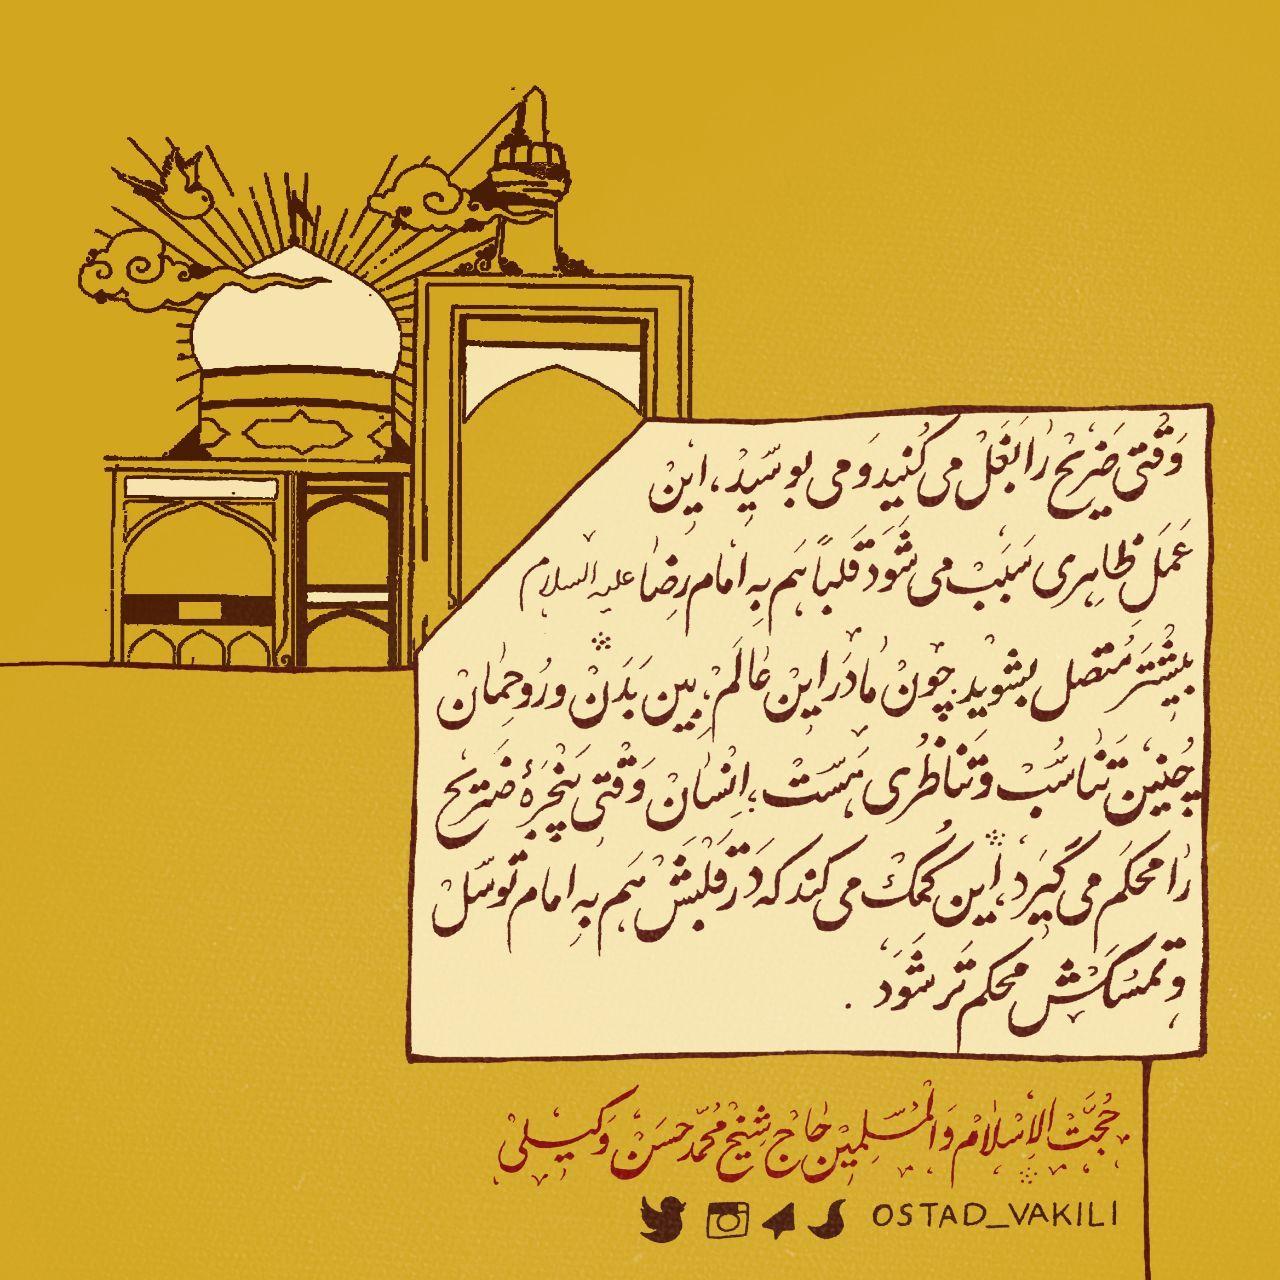 وقتی ضریح را بغل می کنید و می بوسید، این
عمل ظاهری سبب می شود قلباً هم به امام رضا علیه السلام
بیشتر متصل بشوید. چون ما در این عالم، بین بدن و روحمان
چنین تناسب و تناظری هست؛ انسان وقتی پنجرهٔ ضریح
را محکم می گیرد، این کمک می کند که در قلبش هم به امام توسل
و تمسکش محکم تر شود .
حجت الإسلام والمسلمین حاج شیخ محمد حسن وکیلی
OSTAD_VAKILI